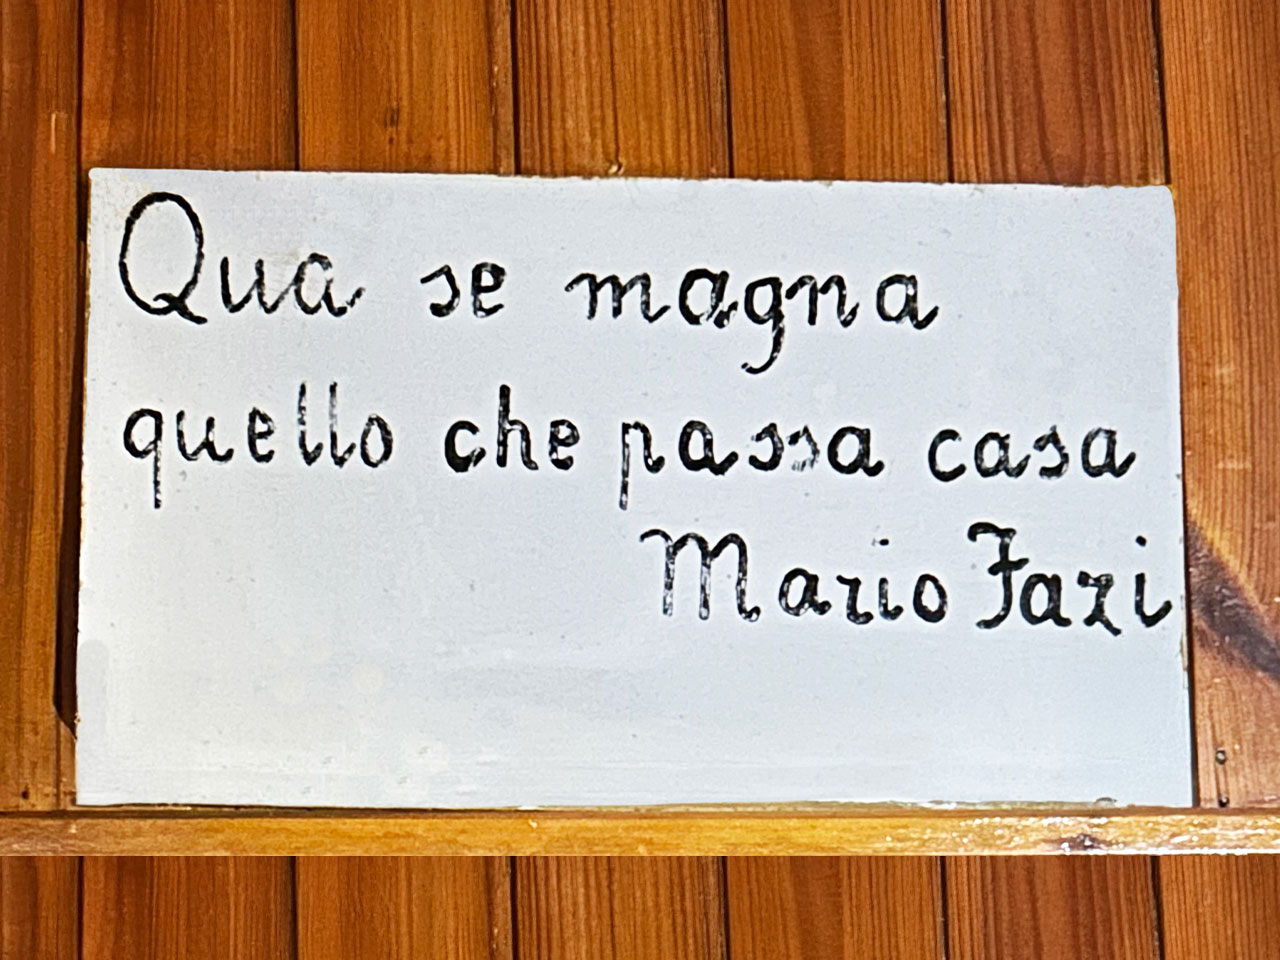 Qua se magna
quello che passa casa
Mario Fazi